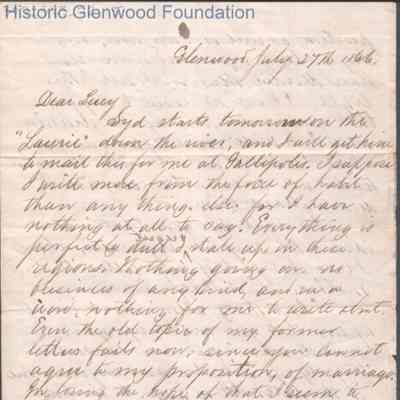 Historic Glenwood Foundation
Glenwood, July 27th 1866.
Dear Lucy
Syd starts tomorrow on the
"Laurie" down the river, and I will get him
to mail this for me at Gallipolis. I suppose
I write more from the force of habit
than any thing else for I have
nothing at all to say. Everything is
perfectly dull & stale up in these
regions. Nothing going on no
business of any kind, and in a
word, nothing for me to write about.
Even the old topic of my former
letters fails now, since you cannot
agree to my proposition, of marriage.
the hope of that I seem to